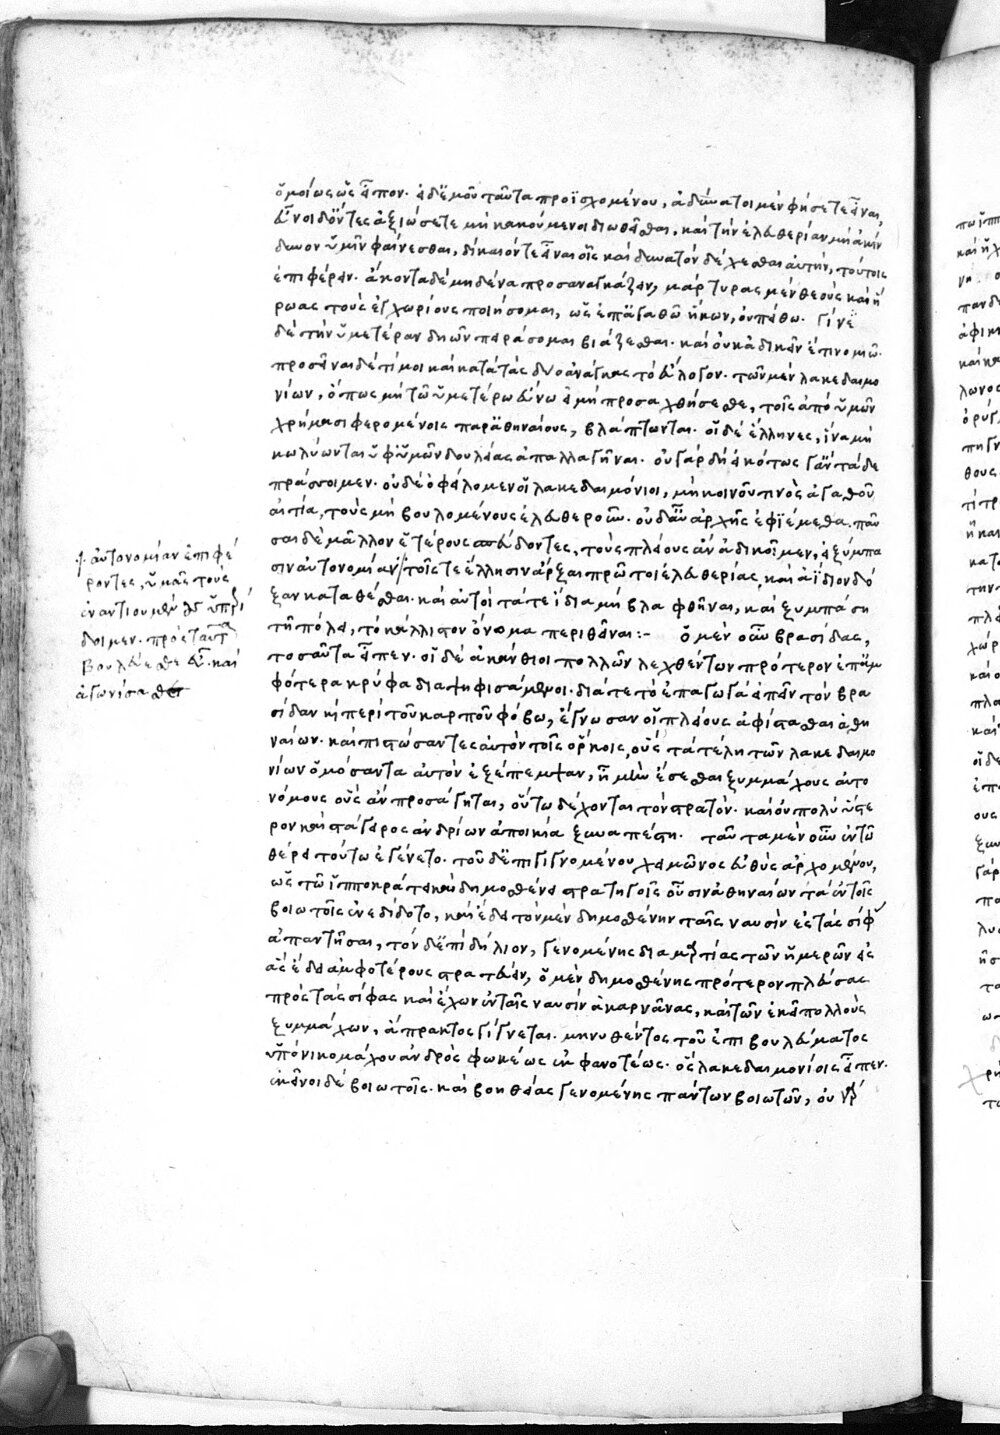 ὁμοίως ὡς εἶπον. εἰ δ' ἐμοῦ ταῦτα προϊσχομένου, ἀδύνατοι μὲν φήσετε εἶναι,
εὖνοι δ' ὄντες ἀξιώσετε μὴ κακούμενοι διωθεῖσθαι, καὶ τὴν ἐλευθερίαν μὴ ἀκίν
δυνον ὑμῖν φαίνεσθαι, δίκαιόν τε εἶναι οἷς καὶ δυνατὸν δέχεσθαι αὐτὴν, τούτοις
ἐπιφέρειν. ἄκοντα δὲ μηδένα προσαναγκάζειν, μάρτυρας μὲν θεοὺς καὶ ἥ
ρωας τοὺς ἐγχωρίους ποιήσομαι, ὡς ἐπ' ἀγαθῷ ἥκων, οὐ πείθω. γῆν
δὲ τὴν ὑμετέραν δῃῶν πειράσομαι βιάζεσθαι. καὶ οὐκ ἀδικεῖν ἔτι νομιῶ.
προσεῖναι δέ τί μοι καὶ κατὰ τὰς δύο ἀνάγκας τὸ εὔλογον. τῶν μὲν λακεδαιμο
νίων, ὅπως μὴ τῷ ὑμετέρῳ εὔνῳ εἰ μὴ προσαχθήσεσθε, τοῖς ἀπὸ ὑμῶν
χρήμασι φερομένοις παρ' ἀθηναίους, βλάπτωνται. οἱ δὲ ἕλληνες, ἵνα μὴ
κωλύωνται ὑφ' ὑμῶν δουλείας ἀπαλλαγῆναι. οὐ γὰρ δὴ εἰκότως γ' ἂν τάδε
πράσσοιμεν. οὐδὲ ὀφείλομεν οἱ λακεδαιμόνιοι, μὴ κοινοῦ τινὸς ἀγαθοῦ
αἰτίᾳ, τοὺς μὴ βουλομένους ἐλευθεροῦν. οὐδ' αὖ ἀρχῆς ἐφιέμεθα. παῦ
σαι δὲ μᾶλλον ἑτέρους σπεύδοντες, τοὺς πλείους ἂν ἀδικοῖμεν, εἰ ξύμπα
σιν αὐτονομίαν τοῖς τε ἕλλησιν ἄρξαι πρῶτοι ἐλευθερίας, καὶ ἀΐδιον δό
ξαν καταθέσθαι. καὶ αὐτοὶ τά τε ἴδια μὴ βλαφθῆναι, καὶ ξυμπάσῃ
τῇ πόλει, τὸ κάλλιστον ὄνομα περιθεῖναι:- ὁ μὲν οὖν βρασίδας,
τοσαῦτα εἶπεν. οἱ δὲ ἀκάνθιοι πολλῶν λεχθέντων πρότερον ἐπ' ἀμ
φότερα κρύφα διαψηφισάμενοι. διά τε τὸ ἐπαγωγὰ εἰπεῖν τὸν βρα
σίδαν κ(αὶ) περὶ τοῦ καρποῦ φόβῳ, ἔγνωσαν οἱ πλείους ἀφίστασθαι ἀθη
ναίων. καὶ πιστώσαντες αὐτὸν τοῖς ὅρκοις, οὓς τὰ τέλη τῶν λακεδαιμο
νίων ὀμόσαντα αὐτὸν ἐξέπεμψαν, ἦ μὴν ἔσεσθαι ξυμμάχους αὐτο
νόμους οὓς ἂν προσάγηται, οὕτω δέχονται τὸν στρατόν. καὶ οὐ πολὺ ὕστε
ρον καὶ στάγειρος ἀνδρίων ἀποικία ξυναπέστη. ταῦτα μὲν οὖν ἐν τῷ
θέρει τούτῳ ἐγένετο. τοῦ δ' ἐπιγιγνομένου χειμῶνος εὐθὺς ἀρχομένου,
ὡς τῷ ἱπποκράτει καὶ δημοσθένει στρατηγοῖς οὖσιν ἀθηναίων τὰ ἐν τοῖς
βοιωτοῖς ἐνεδίδοτο, καὶ ἔδει τὸν μὲν δημοσθένην ταῖς ναυσὶν ἐς τὰς σίφας
ἀπαντῆσαι, τὸν δ' ἐπὶ δήλιον, γενομένης διαμαρτίας τῶν ἡμερῶν ἐς
ἃς ἔδει ἀμφοτέρους στρατεύειν, ὁ μὲν δημοσθένης πρότερον πλεύσας
πρὸς τὰς σίφας καὶ ἔχων ἐν ταῖς ναυσὶν ἀκαρνᾶνας, καὶ τῶν ἐκεῖ πολλοὺς
ξυμμάχων, ἄπρακτος γίγνεται. μηνυθέντος τοῦ ἐπιβουλεύματος
ὑπὸ νικομάχου ἀνδρὸς φωκέως ἐκ φανοτέως. ὃς λακεδαιμονίοις εἶπεν.
ἐκεῖνοι δὲ βοιωτοῖς. καὶ βοηθείας γενομένης πάντων βοιωτῶν, οὐ γάρ
αὐτονομίαν ἐπιφέ
ροντες, ὑμᾶς τοὺς
ἐναντιουμένους περιί
δοιμεν. πρὸς ταῦτα
βουλεύεσθε εὖ. καὶ
ἀγωνίσασθε